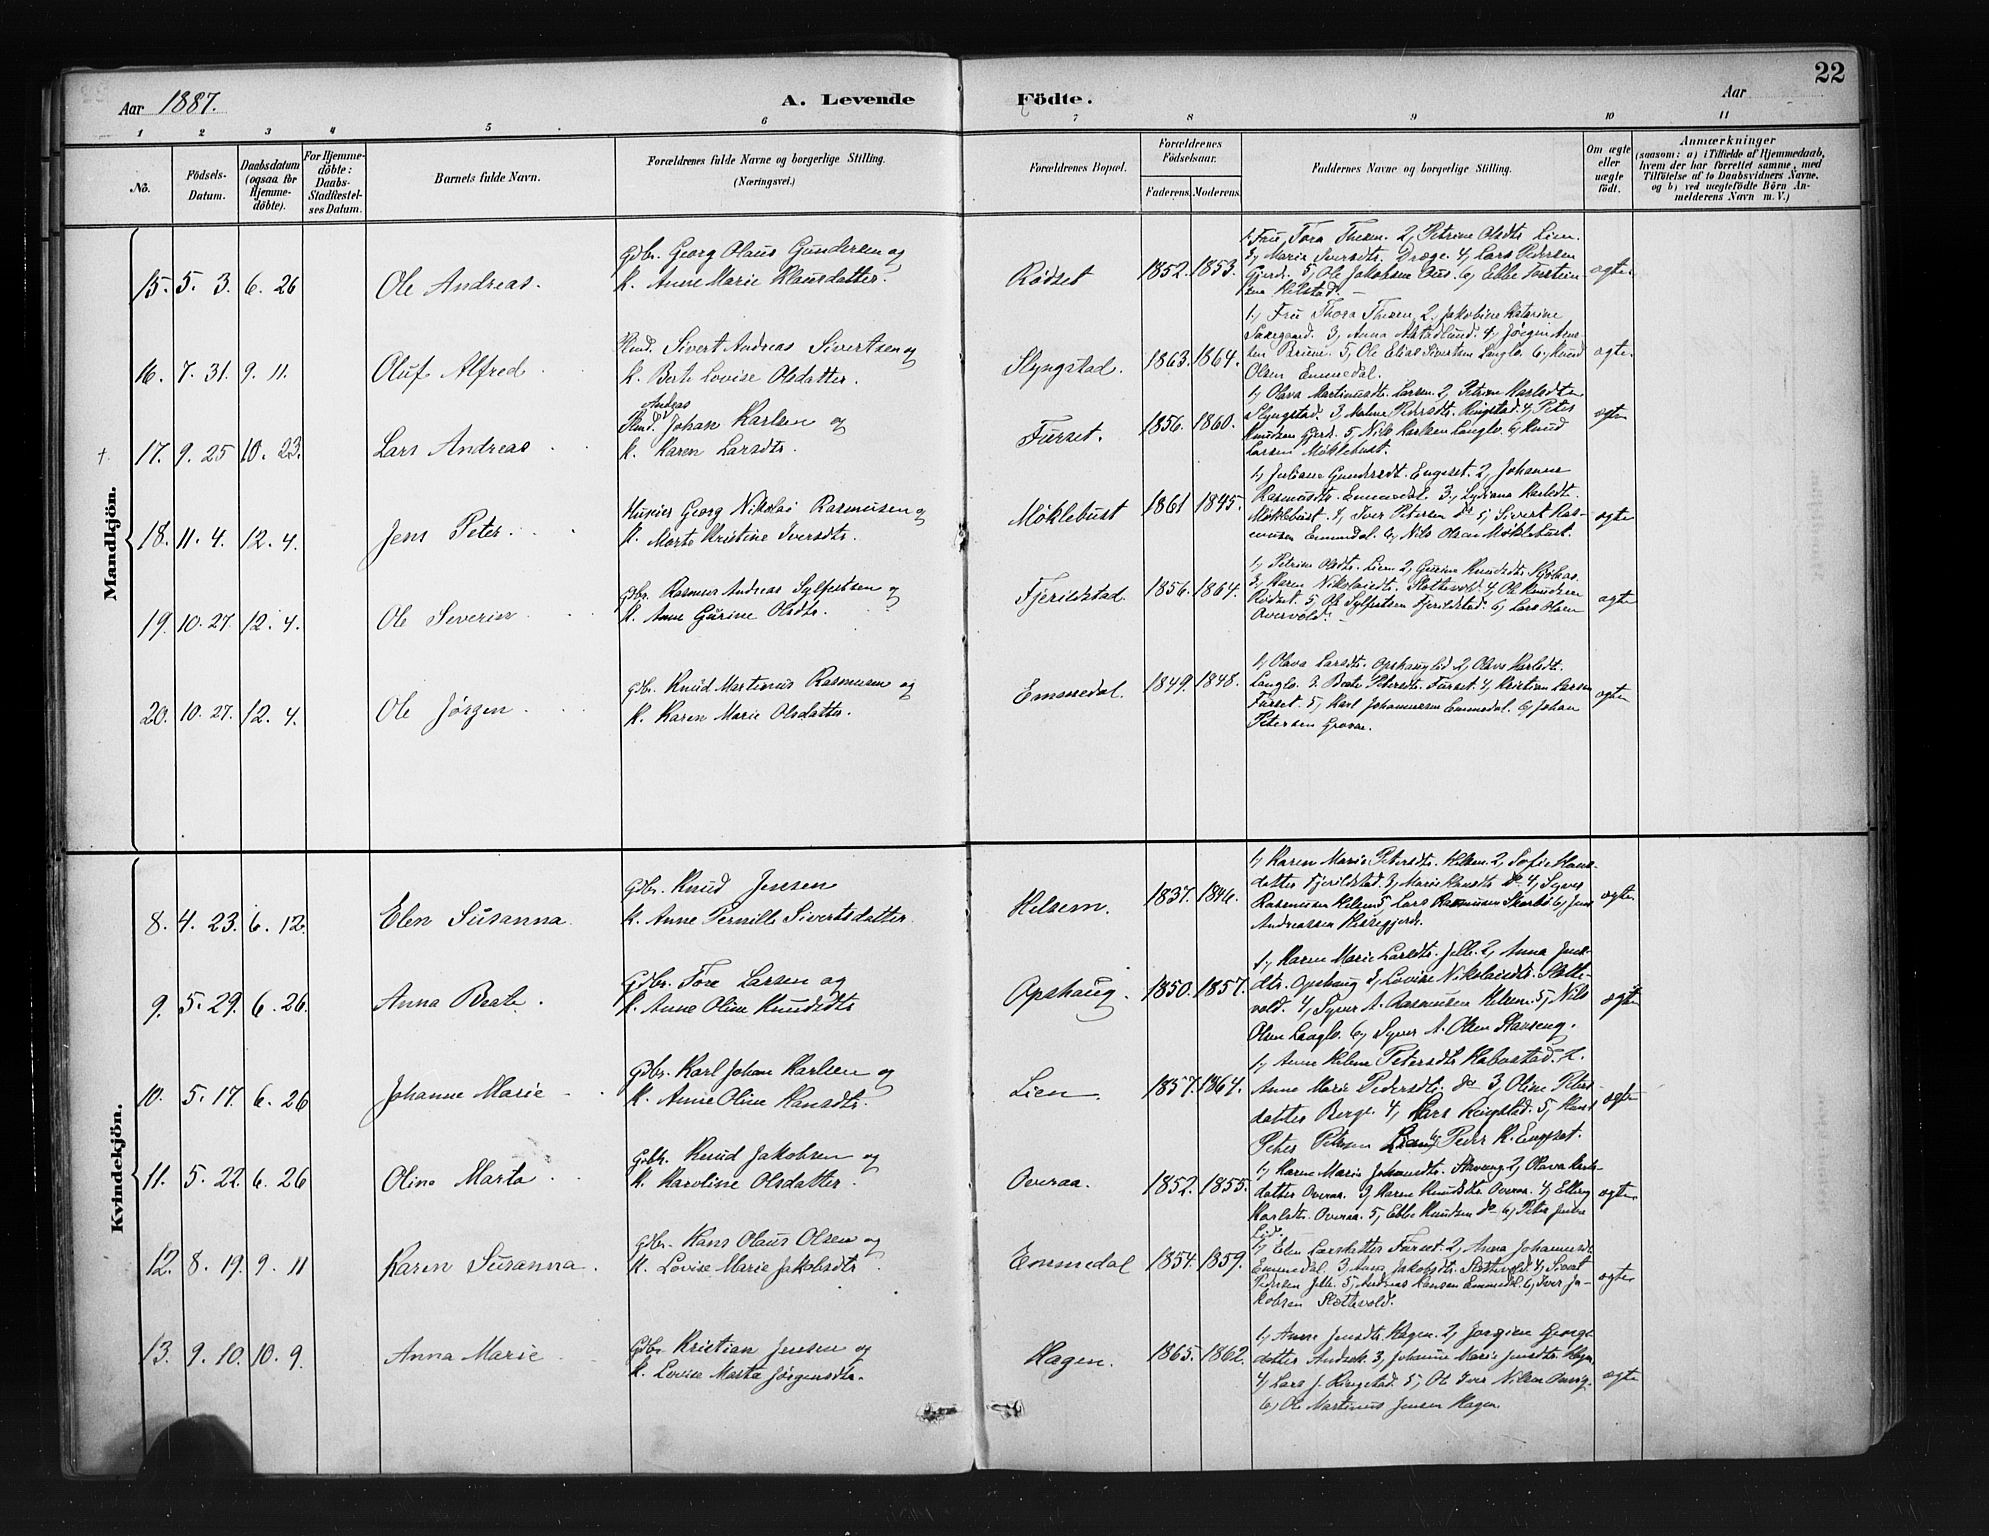 22
Aar 1887.
A. Levende Födte.
Aar
1 2 3 4 5 6 7 8 9 10 11
No.
Födsels-Datum.
Daabsdatum (ogsaa for Hjemme-döbte).
For Hjemme-döbte: Daabs-Stadfæstel-ses Datum.
Barnets fulde Navn.
Forældrenes fulde Navne og borgerlige Stilling.
(Næringsvei.)
Forældrenes Bopæl.
Forældrenes Födselsaar.
Faderens. Moderens.
Faddernes Navne og borgerlige Stilling.
Om ægte eller uægte födt.
Anmærkninger
(saasom: a) i Tilfælde af Hjemmedaab,
hvem der har forrettet samme, med
Tilföielse af to Daabsvidners Navne.
og b) ved uægtefödte Börn An-
melderens Navn m. V.)
Mandkjön.
15. 5. 3. 6. 26 Ole Andreas.
Gdbr. Georg Olaus Gundersen og
K. Anne Marie Klausdatter.
Rödset 1852. 1853.
1, Fru Tora Thesen. 2, Petrine Olsdtr Lien.
3, Marie Sversdtr. Dröge. 4, Lars Pedersen
Gjerde. 5, Ole Jakobsen Aus. 6, Ebbe Torstein-
sen Helstad.
ægte
16. 7. 31. 9. 11. Oluf Alfred
Kmd. Sivert Andreas Sivertsen og
K. Berte Lovise Olsdatter.
Slyngstad. 1863. 1864.
1, Fru Thora Thesen 2, Jakobine Katrine
3, Anna 4, Jörgen
Brune. 5, Ole Elias Sivertsen Langlo. 6, Knud
Olsen Emmedal.
ægte.
+ 17. 9. 25 10. 23. Lars Andreas
Andreas
Kmd. Johan Karlsen og
K. Karen Larsdtr.
Furset. 1856. 1860.
1, Olava Martinusdtr. Larsen. 2, Petrine Karlsdtr
Slyngstad. 3, Malene Pedersdtr. Ringstad. 4, Peter
Knudsen Gjerde. 5, Nils Karlsen Langlo. 6, Knud
Larsen Möklebust.
ægte
18. 11. 4. 12. 4. Jens Peter
Husmd Georg Nikolai Rasmusen og
K. Marte Kristine Iversdtr.
Möklebust 1861 1845.
1, Juliane Gundersdt. Engeset. 2, Johanne
Rasmusdtr. Emmedal. 3, Lydiana Karlsdt.
Möklebust. 4, Iver Petersen do 5, Sivert Ras-
musen Emmedal. 6, Nils Olsen Möklebust.
ægte
19. 10. 27. 12. 4. Ole Severin
Gdbr. Rasmus Andreas Sylfestsen og
K. Anne Gurine Olsdtr.
Fjerildstad 1856. 1864.
1, Petrine Olsdtr. Lien 2, Gurine Knudsdtr
3, Karen Nikolaisdt. Slottevold. 4, Ole Knudsen
Rödset. 5, Ole Sylfestsen Fjerildstad. 6, Lars Olsen
Overvold.
ægte
20. 10. 27. 12. 4. Ole Jörgen
Gdbr. Knud Martinus Rasmusen og
K. Karen Marie Olsdatter.
Emmedal. 1849. 1848.
1, Olava Larsdtr. Opshaug 2, Olava Karlsdt.
Langlo. 3. Beate Petersdtr. Furset. 4, Kristian Larsen
Furset. 5, Karl Johannesen Emmedal. 6, Johan
Petersen Grovae.
ægte
Kvindekjön.
8. 4. 23. 6. 12. Elen Susanna.
Gdbr. Knud Jensen
K. Anne Pernille Sivertsdatter.
Helsem. 1837. 1846.
1, Karen Marie Petersdtr. Helsem. 2, Sofie Hans-
datter Fjerildstad. 3, Marie Hansdtr do 4, Syver
Rasmusen Helsem 5, Lars Rasmusen Skarbö 6, Jens
Andreassen Hessegjerde.
ægte.
9. 5. 29. 6. 26. Anna Beate.
Gdbr. Tore Larsen og
K. Anne Oline Knudsdtr
Opshaug. 1850. 1857.
1, Karen Marie Larsdtr. Jelle. 2, Anna Jens-
dtr. Opshaug 3, Lovise Nikolaisdtr. Slotte-
vold. 4, Syver A. Rasmusen Helsem. 5, Nils
Olsen Langlo. 6, Syver A. Olsen Stavseng.
ægte
10. 5. 17. 6. 26 Johanne Marie
Gdbr. Karl Johan Karlsen og
K. Anne Oline Hansdtr.
Lien. 1857. 1864.
1, Anne Helene Petersdtr Habostad. 2.
Anne Marie Pedersdtr. do 3, Oline Peters-
datter Berge. 4, Lars Ringstad. 5, Hans
Peter Petersen 6, Peder K. Engeset.
ægte
11. 5. 22. 6. 26 Oline Marta
Gdbr. Knud Jakobsen og
K. Karoline Olsdatter.
Overaa. 1852. 1855.
1, Karen Marie Johansdtr. Stavseng 2, Olava Karls-
datter Overaa. 3, Karen Knudsdtr. Overaa. 4, Elling
Karlsdtr. Overaa. 5, Ebbe Knudsen do 6, Peter Jensen
Lid.
ægte.
12. 8. 19. 9. 11 Karen Susanna.
Gdbr. Hans Olaus Olsen og
K. Lovise Marie Jakobsdtr
Emmedal 1854. 1859.
1, Elen Larsdatter Furset. 2, Anna Johannesdt
Emmedal. 3, Anna Jakobsdt. Slottevold. 4, Sivert
Pedersen Jelle. 5, Andreas Hansen Emmedal. 6, Iver Ja-
kobsen Slottevold.
ægte
13. 9. 10. 10. 9. Anna Marie
Gdbr. Kristian Jensen og
K. Lovise Marta Jörgensdtr.
Hagen. 1865. 1862.
1, Anne Jensdtr. Hagen. 2, Jorgine Georgs-
datter 3, Johanne Marie Jensdtr. Hagen
4, Lars J. Ringstad. 5, Ole Iver Nilsen
6, Ole Martinus Jensen Hagen.
ægte